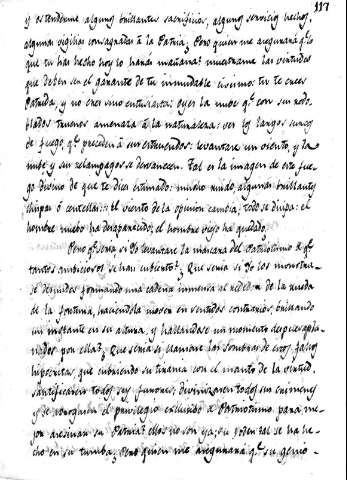 117
y estenderme algunos brillantes sacrificios, algunos servicios hechos,
algunas vigilias consagradas à la Patria; Pero quien me asegurará q.e lo
que tu has hecho hoy lo harás mañana? muestrame las virtudes
que deben ser el garante de tu inmudable civismo: tu te crees
Patriota, y no eres sino entusiasta: oyes la nube q.e con sus redo-
blados truenos amenaza à la naturaleza: ves los largos surcos
de fuego q.e preceden à sus estruendos: levantase un viento, y la
nube y sus relampagos se desvanecen. Tal es la imagen de este fue-
go divino de que te dices animado: mucho ruido, algunas brillantes
chispas ó centellas: el viento de la opinion cambia, todo se disipa: el
hombre nuebo ha desaparecido; el hombre viejo ha quedado.
Pero q.e seria si yo levantase la mascara del Patriotismo de q.e
tantos ambiciosos se han cubierto? Que seria si yo los mostra-
se desnudos formando una cadena inmensa al rededor de la rueda
de la fortuna, haciendola mover en sentidos contrarios, brillando
un instante en su altura, y hallandose un momento despues apla-
nados por ella? Que seria si llamase las sombras de estos falsos
hipocritas, que cubriendo su tirania con el manto de la virtud,
santificaron todos sus furores, divinizaron todos sus crimenes
y se abrogaron el privilegio exclusivo à Patriotismo para me-
jor asesinar su Patria? ellos no son ya; su poder tal se ha he-
cho en su tumba; Pero quien me asegurará q.e su genio-